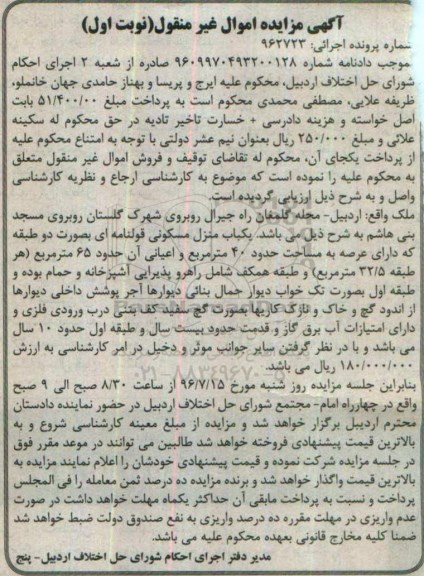 آگهی مزایده اموال غیر منقول(نوبت اول)
شماره پرونده اجرائی: ۹۶۲۷۲۳
بموجب دادنامه شماره ۹۶۰۹۹۷۰۴۹۳۲۰۰۱۲۸ صادره از شعبه ۲ اجرای احکام
شورای حل اختلاف اردبیل، محکوم علیه ایرج و پریسا و بهناز حامدی جهان خانملو،
ظریفه علایی، مصطفی محمدی محکوم است به پرداخت مبلغ ۵۱/۴۰۰/۰۰ بابت
اصل خواسته و هزینه دادرسی + خسارت تاخیر تادیه در حق محکوم له سکینه
علائی و مبلغ ۲۵۰/۰۰۰ ریال بعنوان نیم عشر دولتی با توجه به امتناع محکوم علیه
از پرداخت یکجای آن، محکوم له تقاضای توقیف و فروش اموال غیر منقول متعلق
به محکوم علیه را نموده است که موضوع به کارشناسی ارجاع و نظریه کارشناسی
واصل و به شرح ذیل ارزیابی گردیده است.
ملک واقع: اردبیل- محله گلمغان راه جبرال روبروی شهرک گلستان روبروی مسجد
بنی هاشم به شرح ذیل می باشد. یکباب منزل مسکونی قولنامه ای بصورت دو طبقه
که دارای عرصه به مساحت حدود ۴۰ مترمربع و اعیانی آن حدود ۶۵ مترمربع (هر
طبقه ۳۲/۵ مترمربع) و طبقه همکف شامل راهرو پذیرایی آشپزخانه و حمام بوده و
طبقه اول بصورت تک خواب دیوار حمال بنائی دیوارها آجر پوشش داخلی دیوارها
از اندود گچ و خاک و نازک کاریها بصورت گچ سفید کف بتنی درب ورودی فلزی و
دارای امتیازات آب برق گاز و قدمت حدود بیست سال و طبقه اول حدود ۱۰ سال
می باشد و با در نظر گرفتن سایر جوانب موثر و دخیل در امر کارشناسی به ارزش
۱۸۰/۰۰۰/۰۰۰ ریال می باشد.
بنابراین جلسه مزایده روز شنبه مورخ ۹۶/۷/۱۵ از ساعت ۸/۳۰ صبح الی ۹ صبح
واقع در چهارراه امام- مجتمع شورای حل اختلاف اردبیل در حضور نماینده دادستان
محترم اردبیل برگزار خواهد شد و مزایده از مبلغ معینه کارشناسی شروع و به
بالاترین قیمت پیشنهادی فروخته خواهد شد طالبین می توانند در موعد مقرر فوق
در جلسه مزایده شرکت نموده و قیمت پیشنهادی خودشان را اعلام نمایند مزایده به
بالاترین قیمت واگذار خواهد شد و برنده مزایده ده درصد ثمن معامله را فی المجلس
پرداخت و نسبت به پرداخت مابقی آن حداکثر یکماه مهلت خواهد داشت در صورت
عدم واریزی در مهلت مقرره ده درصد واریزی به نفع صندوق دولت ضبط خواهد شد
ضمنا کلیه مخارج قانونی بعهده محکوم علیه می باشد.
مدیر دفتر اجرای احکام شورای حل اختلاف اردبیل- پنج